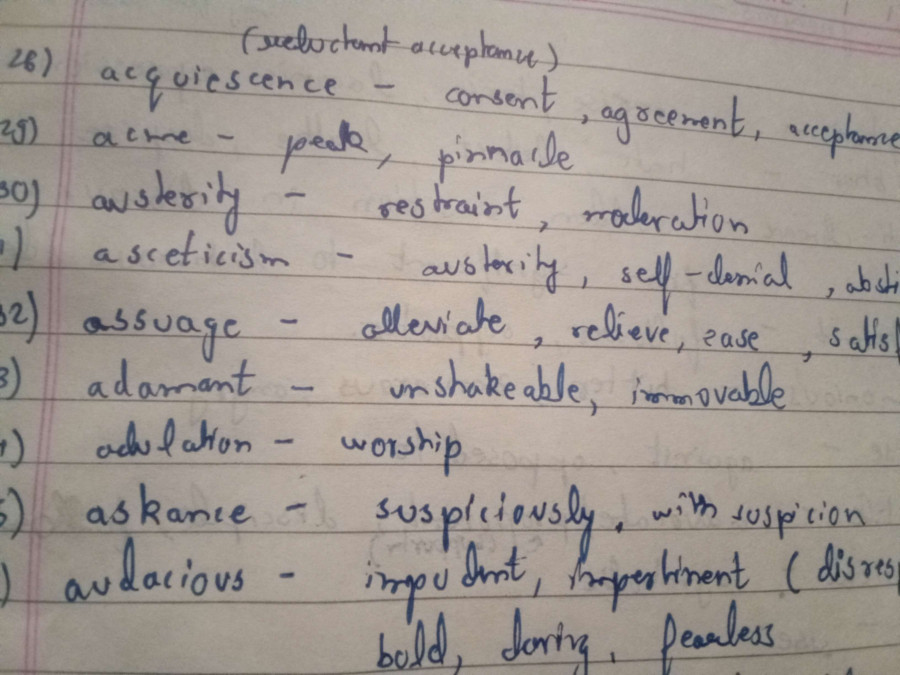 (reluctant acceptance)
28) acquiescence - consent, agreement, acceptance
29) acme - peak, pinnacle
30) austerity - restraint, moderation
1) asceticism - austerity, self-denial, absti
32) assuage - alleviate, relieve, ease, satisf
3) adamant - unshakeable, immovable
) adulation - worship
5) askance - suspiciously, with suspicion
) audacious - impudent, impertinent (disresp
bold, daring, fearless